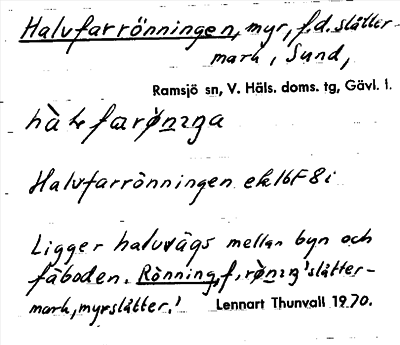 Halvfarrönningen, myr, f.d. slåtter-
mark, Sund,
Ramsjö sn, V. Häls. doms. tg, Gävl. l.
Halvfarrönningen ek 16F8i
Ligger halvvägs mellan byn och
fäboden. Rönning, f.,
'slåtter-
mark, myrslåtter.' Lennart Thunvall 1970.